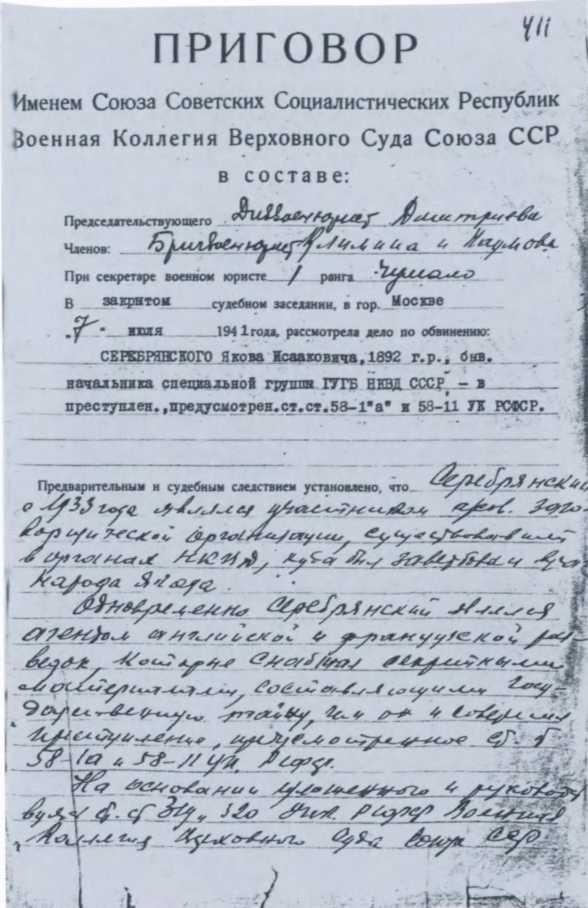 411
ПРИГОВОР
Именем Союза Советских Социалистических Республик
Военная Коллегия Верховного Суда Союза ССР
в составе:
Председательствующего Диввоенюрист Дмитриева
Членов: Бригвоенюрист Климина и Наумова
При секретаре военном юристе 1 ранга Чумало
В закрытом судебном заседании, в гор. Москве
"7" июля 1941 года, рассмотрела дело по обвинению:
СЕРЕБРЯНСКОГО Якова Исааковича, 1892 г.р., быв.
начальника специальной группы ГУГБ НКВД СССР, – в
преступлен., предусмотрен.ст.ст.58-1"а" и 58-11 УК РСФСР.
Предварительным и судебным следствием установлено, что Серебрянский
с 1933 года являлся участником
организации, существовавшей
в органах НКВД, куда был завербован
народа Ягода.
Одновременно Серебрянский являлся
агентом английской и французской раз-
ведок, которые снабжал секретными
материалами, составляющими госу-
дарственную тайну, чем он и совершил
преступление, предусмотренное ст. ст
58-1а и 58-11 УК РСФСР.
На основании изложенного и руковод
ст. ст 319 и 320 УПК РСФСР Военная
Коллегия Верховного Суда Союза ССР